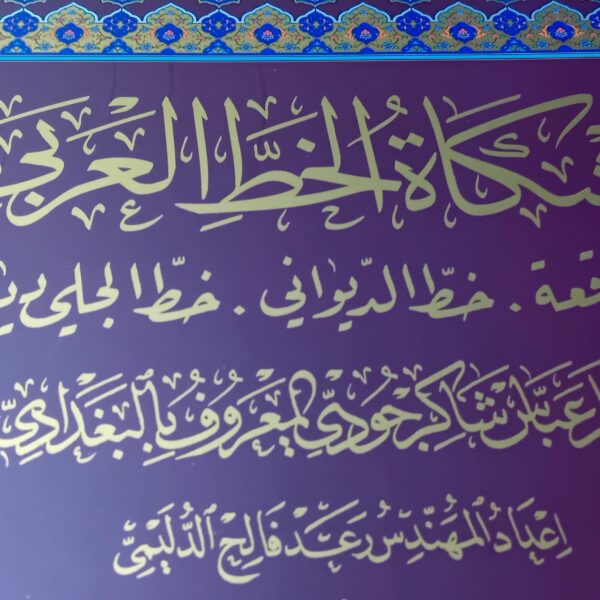 مشكاة الخطّ العربي
رقعة . خطّ الدّيواني . خطّ الجلي ديو
عبّاس شاكر جودي المعروف بالبغدادي
إعداد المهندس رعد فالح الدّليمي